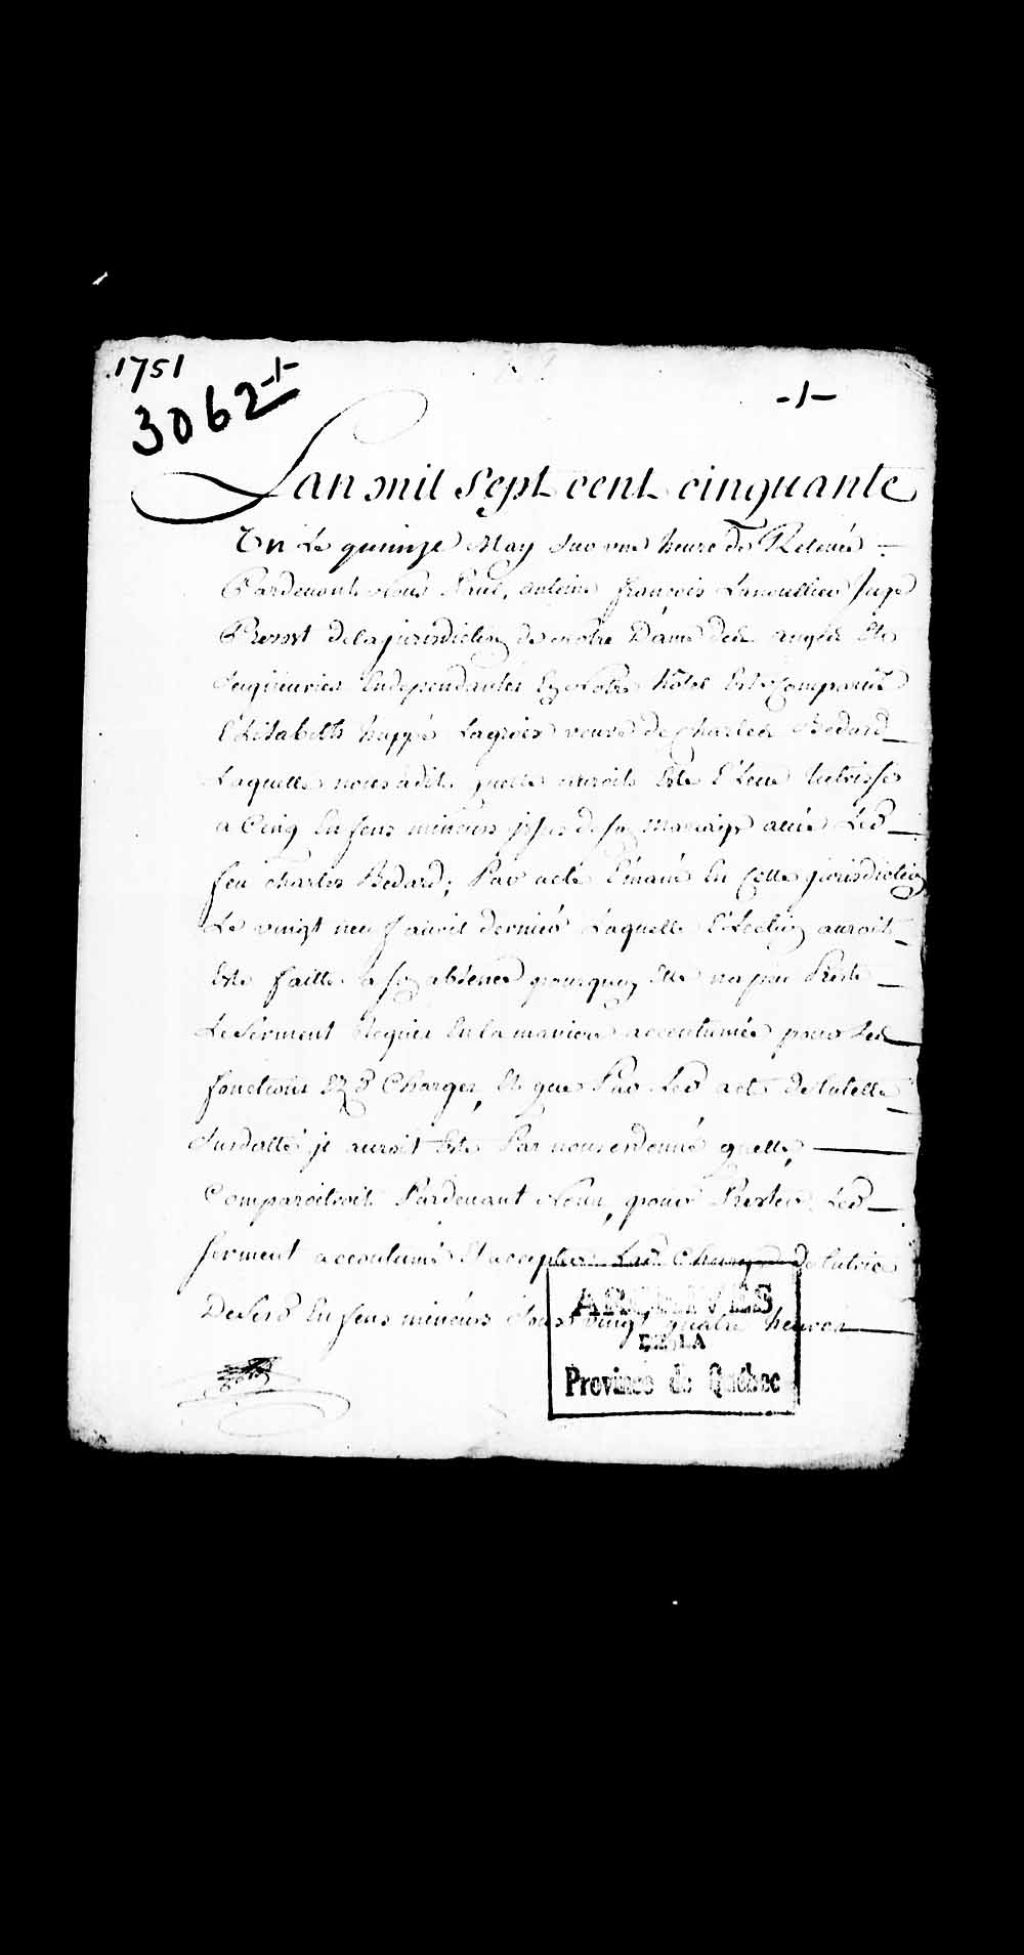 1751
3062 -1-
-1-
Lan mil sept cent cinquante
Un Le quinze May Sur une heure de Relevée
Pardevant Nous Paul, antoine françois Lanoullier Juge
Prevost dela jurisdiction de notre Dame des anges Et
Seigneuries Independantes En Notre hôtel Est Comparüe
Elisabeth huppé Lagroix veuve de Charles Bedard
Laquelle nous a dit quelle auroit Esté Eleue tutrisse
a Cinq Enfens mineurs issus de son Mariage avec Led
feu Charles Bedard; Par acte Emané En Cette jurisdiction
Le vingt neuf avril dernier Laquelle Election auroit
Esté faitte a son absence pourquoy Elle na peu Prester
Le Serment Requis En la maniere accoutumée pour Les
fonctions Esd Charges, Et que Par Led acte de tutelle
Susdatté il auroit Esté Par nous ordonné quelle
Comparoitroit Pardevant Nous, pour Prester Led
serment accoutumé Et accepter Lad Charge de tutrice
De Sesd Enfens mineurs Sous vingt quatre heures
ARCHIVES
DE LA
Province de Québec